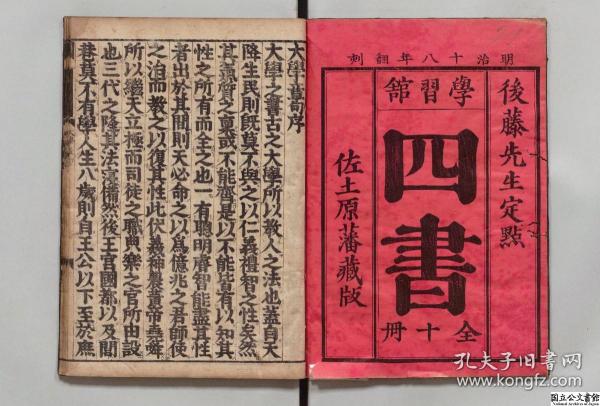 明治十八年翻刻
後藤先生定點
學習館
四書
全十冊
佐土原藩藏版
大學章句序
大學之書古之大學所以教人之法也蓋自天
降生民則既莫不與之以仁義禮智之性矣然
其氣質之稟或不能齊是以不能皆有以知其
性之所有而全之也一有聰明睿智能盡其性
者出於其閒則天必命之以爲億兆之君師使
之治而教之以復其性此伏羲神農黃帝堯舜
所以繼天立極而司徒之職典樂之官所由設
也三代之隆其法寖備然後王宮國都以及閭
巷莫不有學人生八歲則自王公以下至於庶
孔夫子旧书网
www.kongfz.com
国立公文書館
National Archives of Japan